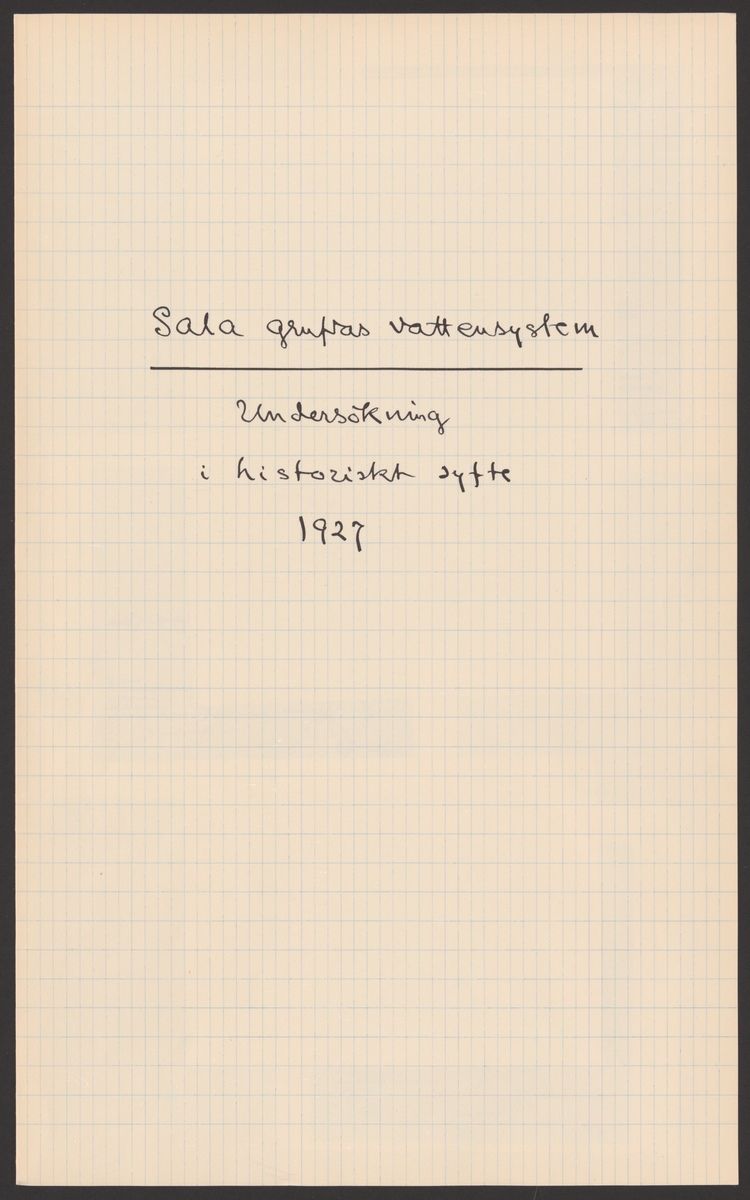 Sala grufvas vattensystem
Undersökning
i historiskt syfte
1927